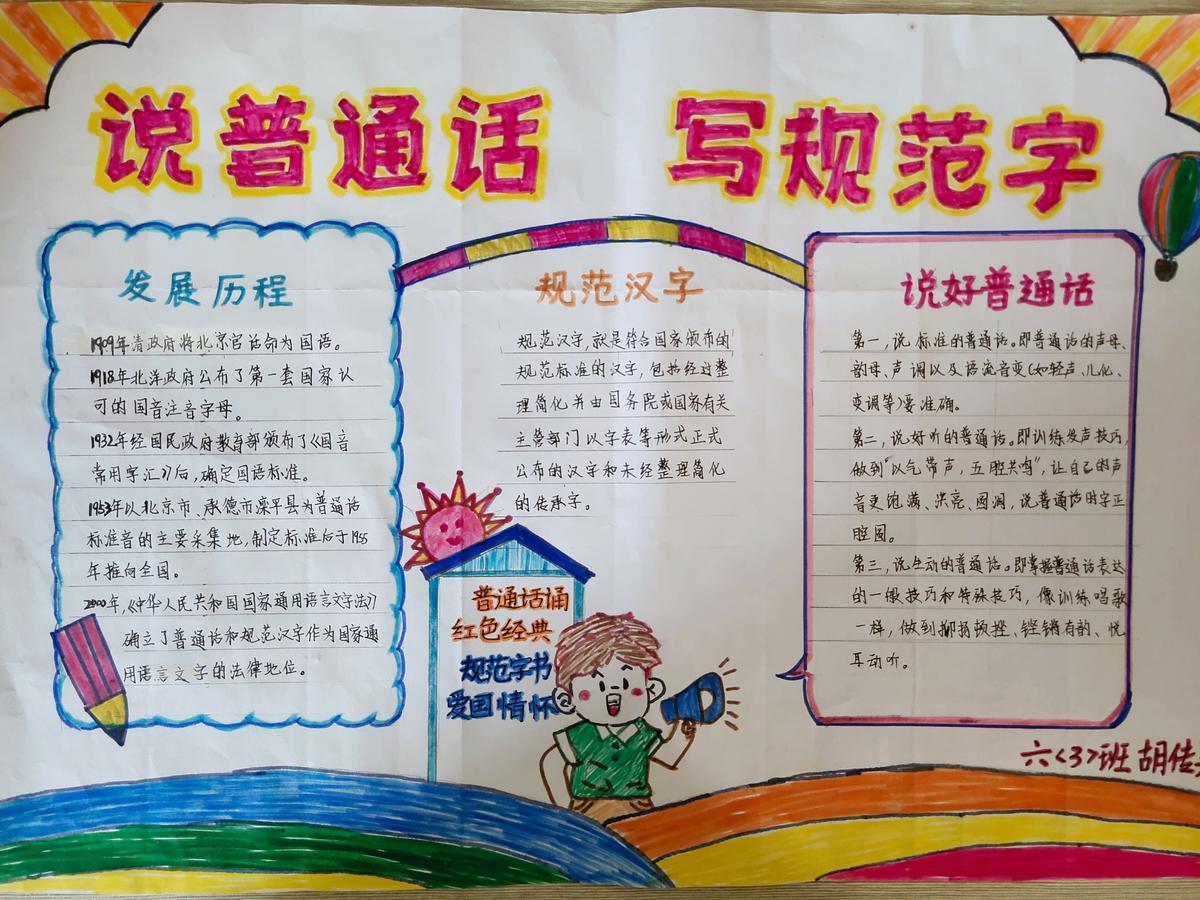 说普通话 写规范字
发展历程
1909年清政府将北京官话命为国语。
1918年北洋政府公布了第一套国家认
可的国音注音字母。
1932年经国民政府教育部颁布了《国音
常用字汇》后,确定国语标准。
1953年以北京市、承德市滦平县为普通话
标准音的主要采集地,制定标准后于1955
年推向全国。
2000年,《中华人民共和国国家通用语言文字法》
确立了普通话和规范汉字作为国家通
用语言文字的法律地位。
规范汉字
规范汉字,就是符合国家颁布的
规范标准的汉字,包括经过整
理简化并由国务院或国家有关
主管部门以字表等形式正式
公布的汉字和未经整理简化
的传承字。
普通话诵
红色经典
规范字书
爱国情怀
说好普通话
第一,说标准的普通话。即普通话的声母、
韵母、声调以及语流音变(如轻声、儿化、
变调等)要准确。
第二,说好听的普通话。即训练发声技巧,
做到“以气带声,五腔共鸣”,让自己的声
音更饱满、洪亮、圆润,说普通话时字正
腔圆。
第三,说生动的普通话。即掌握普通话表达
的一般技巧和特殊技巧,像训练唱歌
一样,做到抑扬顿挫、铿锵有韵、悦
耳动听。
六<3>班 胡传